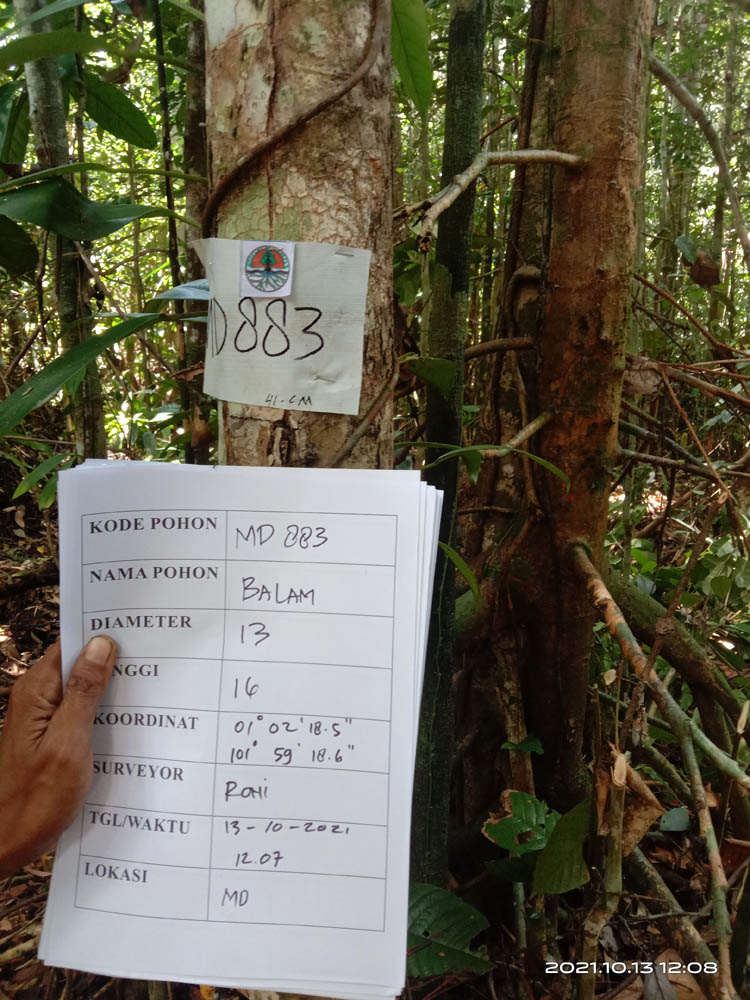 MD 883
41. CM
KODE POHON MD 883
NAMA POHON BALAM
DIAMETER 13
NGGI 16
KOORDINAT 01° 02' 18.5"
101° 59' 18.6"
SURVEYOR
TGL/WAKTU 13-10-2021
12.07
LOKASI MD
2021.10.13 12:08